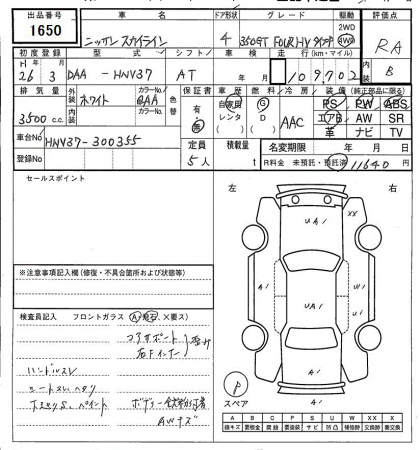 出品番号 車名 ドア形状 グレード 駆動 評価点
1650 ニッサン スカイライン 4 350GT FOUR HV 2WD 4WD RA
初度登録 型式 シフト 車検 走行(km・マイル) 内装
H 26年 3月 DAA - HNV37 AT 年 月 109,702 B
排気量 外装 カラーNo. 色替 保証書 車歴 燃料 冷房 装備 (純正部品に限る)
3500 c.c. ホワイト QAA 有・無 自家用 G AAC PS PW ABS
内装 カラーNo. レンタ D エアB AW SR
革 ナビ TV
車台No. HNV37-300355 定員 積載量 名変期限 年 月 日
登録No. 5人 t R料金 未預託・預託済 11640円
セールスポイント
左 右
UA1 XX
A1 UA1 U1
A1
※注意事項記入欄(修復・不具合箇所および状態等)
検査員記入 フロントガラス (A・飛石・×要ス)
コアサポート
右Fインナー
ハンドルスレ
シートスレ・ヘタリ
ペイント
ボデー
AWキズ
P
スペア
A1
A B C P S U W X XX X
線キズ 要板金 腐蝕 要塗装 サビ 凹凸 補修跡 要交換 交換跡 要交換